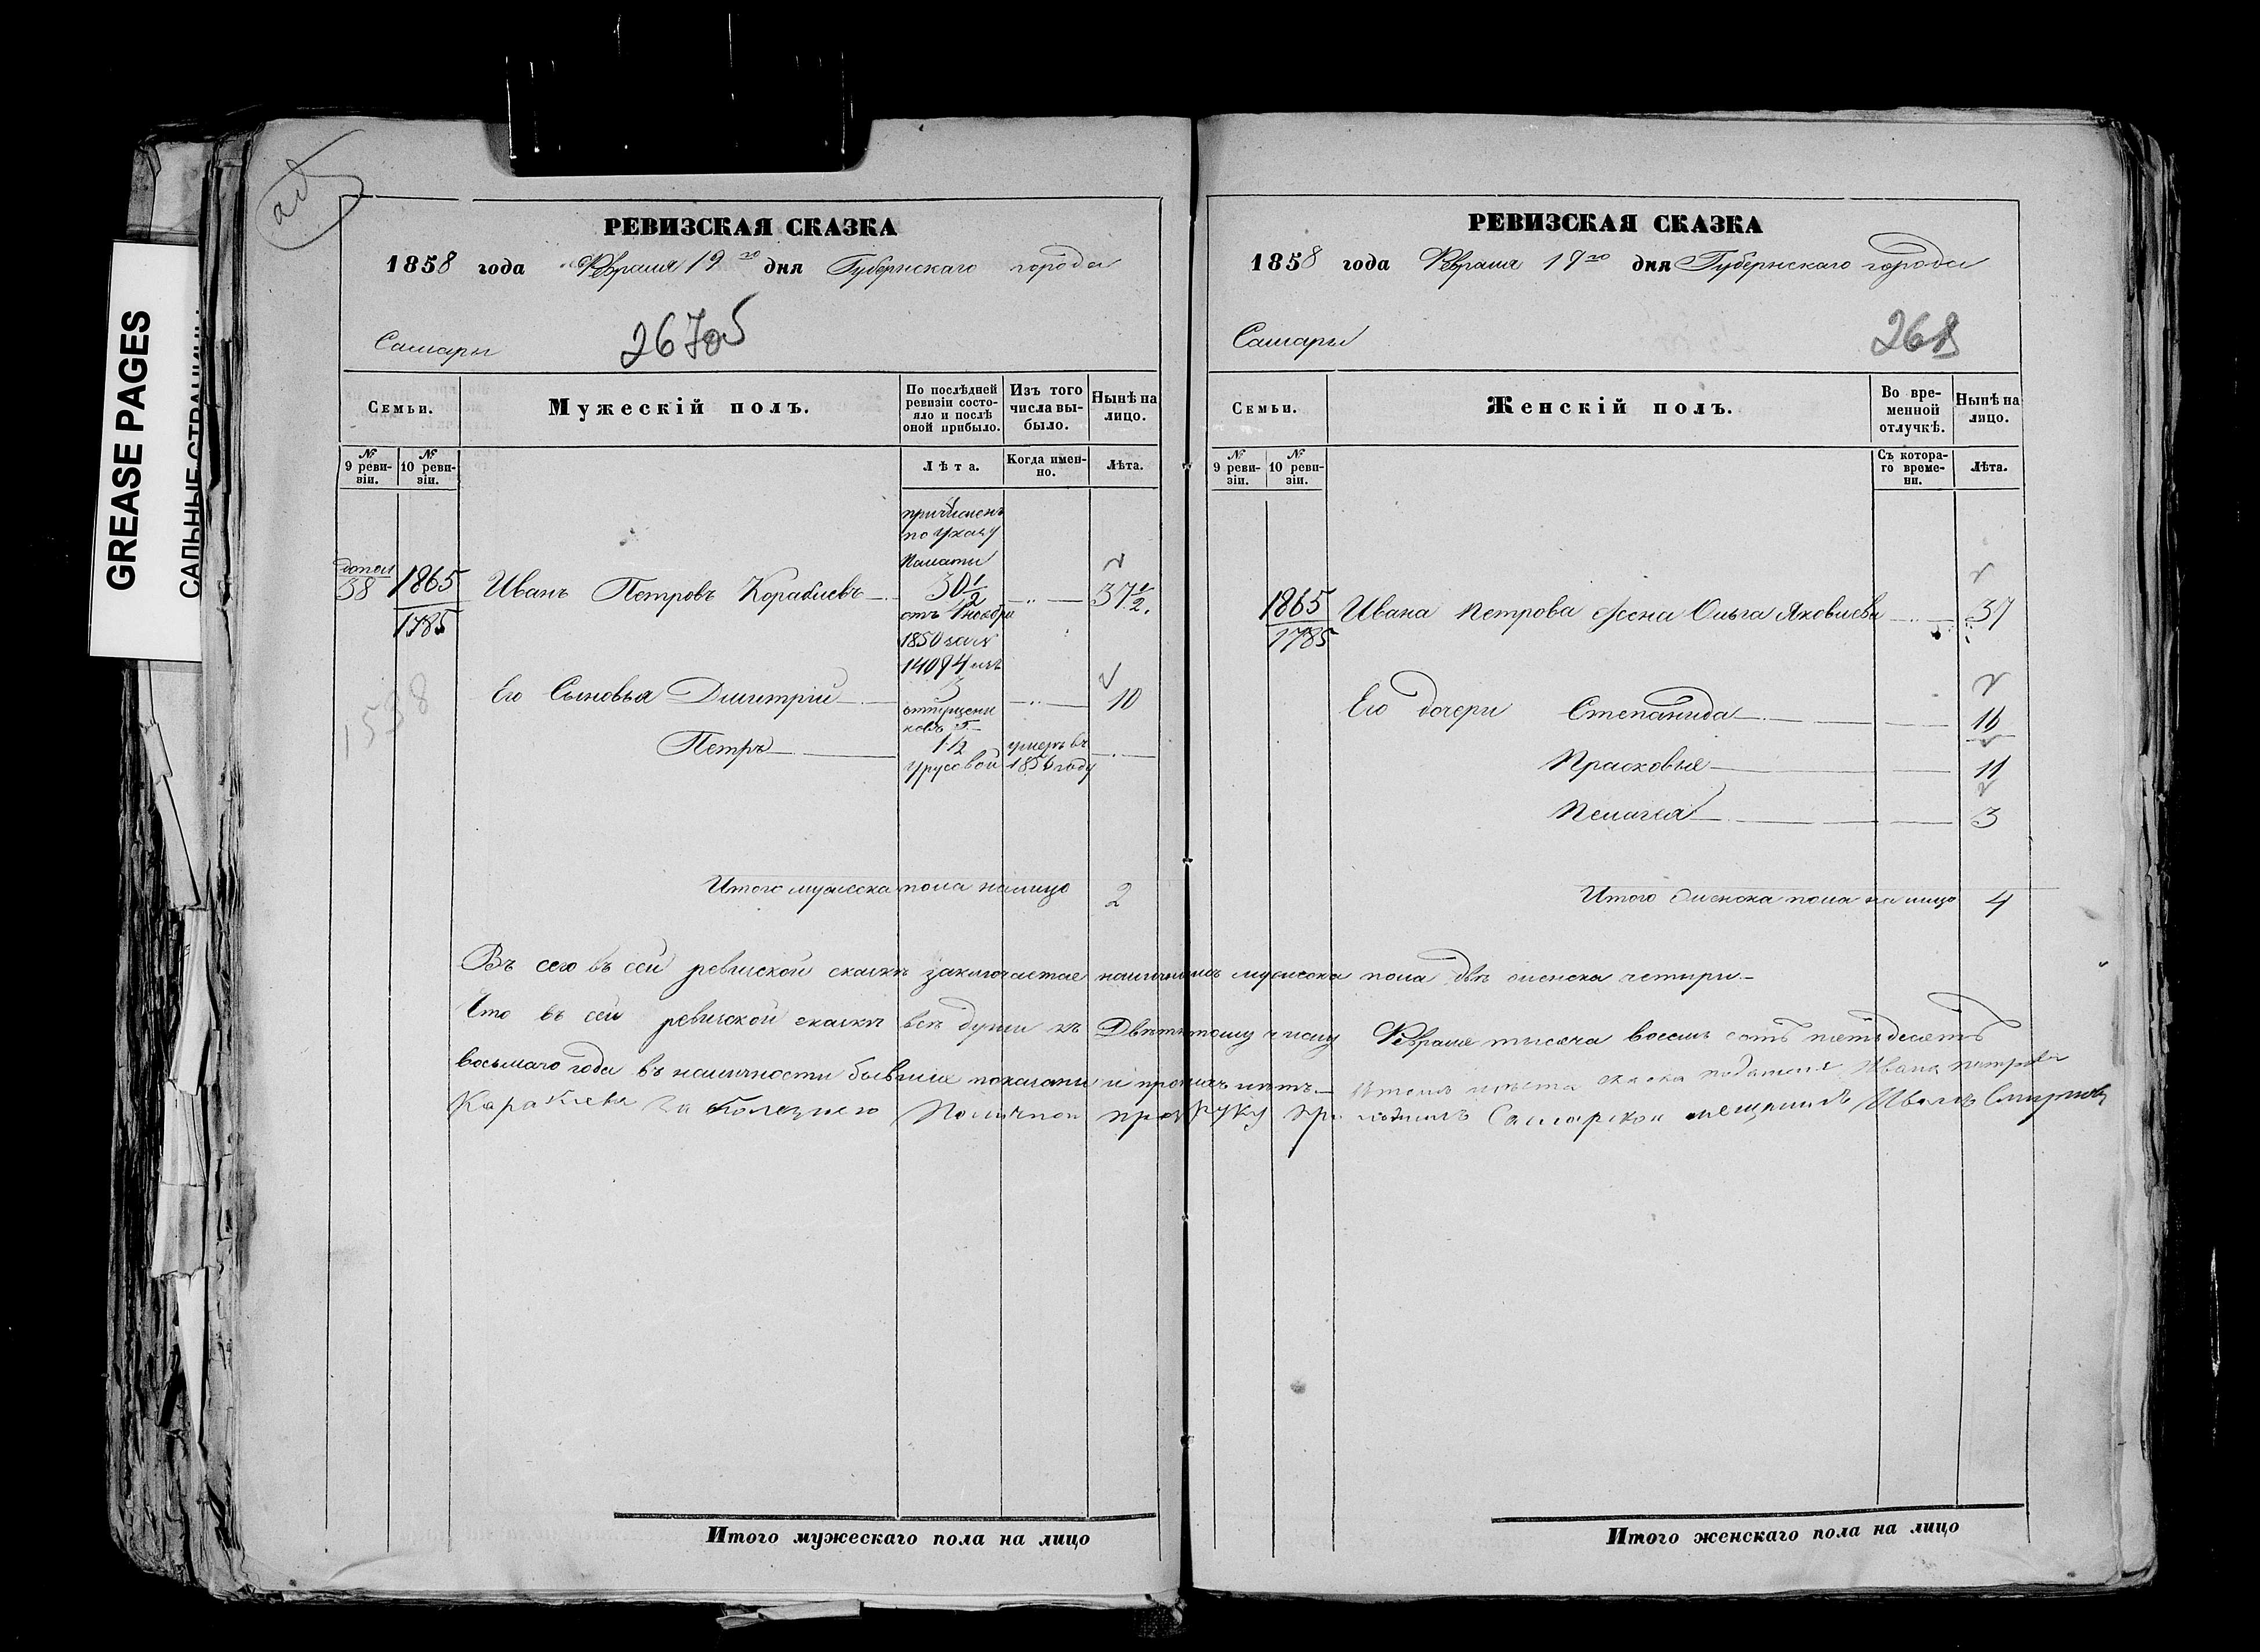 GREASE PAGES
САЛЬНЫЕ СТРАНИЦЫ
РЕВИЗСКАЯ СКАЗКА
1858 года Февраля 19го дня Губернскаго города
Самары
Семьи.
Мужескій полъ.
По послѣдней ревизіи состояло и послѣ оной прибыло.
Изъ того числа выбыло.
Нынѣ на лицо.
№ 9 ревизіи.
№ 10 ревизіи.
Лѣта.
Когда именно.
Лѣта.
причисленъ
по указу
Палаты
допол 38 1865 Иванъ Петровъ Кораблевъ 30 1/2 37 1/2.
1785
отъ ноября
1850 за №
14094 изъ
Его Сыновья Дмитрій 3 10
отпущени
ковъ
Петръ 1 1/2 умеръ въ
Урусовой 1856 году
1538
Итого мужеска пола налицо 2
РЕВИЗСКАЯ СКАЗКА
1858 года Февраля 19го дня Губернскаго города
Самары
268
Семьи.
Женскій полъ.
Во временной отлучкѣ.
Нынѣ на лицо.
№ 9 ревизіи.
№ 10 ревизіи.
Съ котораго времени.
Лѣта.
1865 Ивана Петрова жена Ольга Яковлева 37
1785
Его дочери Степанида 16
Прасковья 11
Пелагея 3
Итого женска пола на лицо 4
Въ сего въ сей ревиской сказкѣ заключается наличныхъ мужеска пола двѣ женска четыри.
Что въ сей ревиской сказкѣ всѣ души къ числу Февраля тысяча восемь сотъ пятьдесятъ
восьмаго года въ наличности бывшіе показаны и прописныхъ нѣтъ. Ивана Петрова
Караблева за болезнего руку приложилъ Самарской мещининъ Иванъ Смирновъ
Итого мужескаго пола на лицо
Итого женскаго пола на лицо